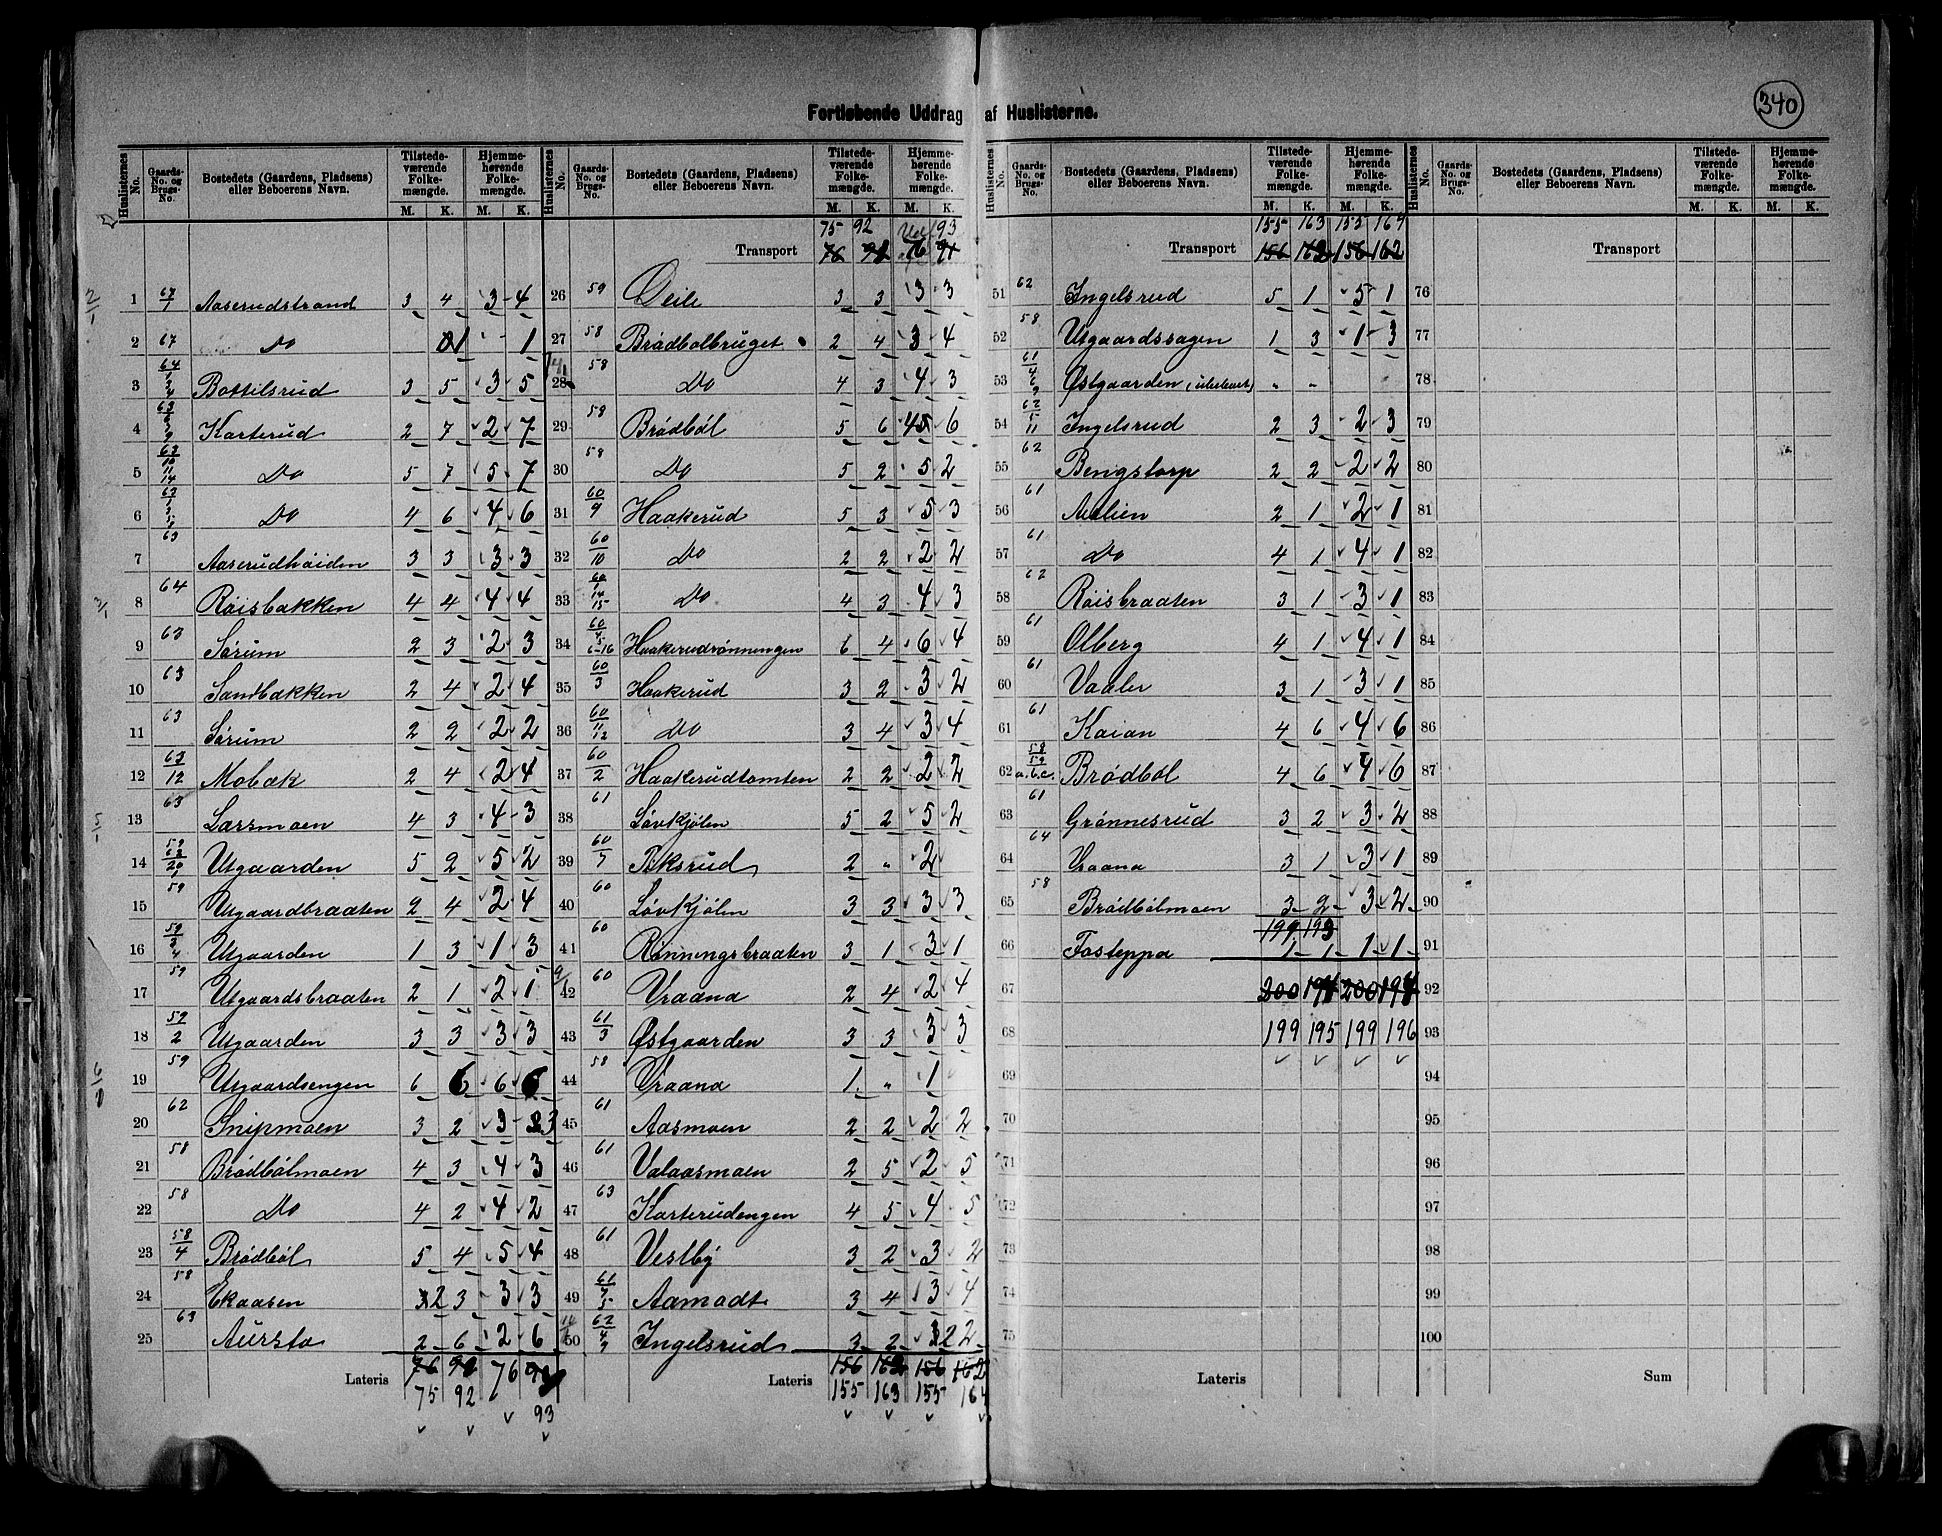 340
Fortløbende Uddrag af Huslisterne.
Huslisternes No. Gaards-No. og Brugs-No. Bostedets (Gaardens, Pladsens) eller Beboerens Navn. Tilstedeværende Folkemængde. M. K. Hjemmehørende Folkemængde. M. K.
1 67/1 Aaserudstrand 3 4 3 4
2 67 Do 1 1
3 64/1 3 4 Bottilsrud 3 5 3 5
4 63 Karterud 2 7 2 7
5 63/10 11 14 Do 5 7 5 7
6 63 Do 4 6 4 6
7 63 Aaserudhøiden 3 3 3 3
8 64 Røisbakken 4 4 4 4
9 63 Sørum 2 3 2 3
10 63 Sandbakken 2 4 2 4
11 63 Sørum 2 2 2 2
12 63/12 Mobæk 2 4 2 4
13 63 Larsmoen 4 3 4 3
14 Utgaarden 5 2 5 2
15 59 Utgaardbraaten 2 4 2 4
16 59/3 4 Utgaarden 1 3 1 3
17 59 Utgaardsbraaten 2 1 2 1
18 59/2 Utgaarden 3 3 3 3
19 59 Utgaardsengen 6 6 6 6
20 62 Snipmoen 3 2 3 3
21 58 Brødbølmoen 4 3 4 3
22 58 Do 4 2 4 2
23 58/4 Brødbøl 5 4 5 4
24 58 Ekaasen 2 3 3 3
25 63 Aursto 2 6 2 6
Lateris 76 76
75 92 93
Huslisternes No. Gaards-No. og Brugs-No. Bostedets (Gaardens, Pladsens) eller Beboerens Navn. Tilstedeværende Folkemængde. M. K. Hjemmehørende Folkemængde. M. K.
75 92 93
Transport 76 76
26 59 Deile 3 3 3 3
27 58 Brødbølbruget 2 4 3 4
28 58 Do 4 3 4 3
29 58 Brødbøl 5 6 5 6
30 58 Do 5 2 5 2
31 60/9 Haakerud 5 3 5 3
32 60/10 Do 2 2 2 2
33 60/14 15 Do 4 3 4 3
34 60/4 5 6-16 Haakerudrønningen 6 4 6 4
35 60/3 Haakerud 3 2 3 2
36 60/11 12 Do 3 4 3 4
37 60/2 Haakerudtomten 2 2 2 2
38 61 Løvkjølen 5 2 5 2
39 60/7 Piksrud 2 " 2
40 60 Løvkjølen 3 3 3 3
41 60 Rønningsbraaten 3 1 3 1
42 60 Vraana 2 4 2 4
43 61/3 Østgaarden 3 3 3 3
44 58 Vraana 1 " 1
45 61 Aasmoen 2 2 2 2
46 61 Valaasmoen 2 5 2 5
47 63 Karterudengen 4 5 4 5
48 61 Vestby 3 2 3 2
49 61/5 Aamodt 3 4 3 4
50 62/4 9 Ingelsrud 3 2 2 2
Lateris 156 162 156 162
155 163 155 164
Huslisternes No. Gaards-No. og Brugs-No. Bostedets (Gaardens, Pladsens) eller Beboerens Navn. Tilstedeværende Folkemængde. M. K. Hjemmehørende Folkemængde. M. K.
155 163 155 164
Transport 156 162 156 162
51 62 Ingelsrud 5 1 5 1
52 58 Utgaardssagen 1 3 1 3
53 61/4 6 9 Østgaarden (ubeboet) " "
54 62/5 11 Ingelsrud 2 3 2 3
55 62 Bengstorp 2 2 2 2
56 61 Melien 2 1 2 1
57 61 Do 4 1 4 1
58 62 Røisbraaten 3 1 3 1
59 61 Olberg 4 1 4 1
60 61 Vaaler 3 1 3 1
61 61 Kaian 4 6 4 6
62 58/59 a.b.c. Brødbøl 4 6 4 6
63 61 Grønnesrud 3 2 3 2
64 64 Vraana 3 1 3 1
65 58 Brødbølmoen 3 2 3 2
199 193
66 Fosteppa 1 1 1 1
67 200 194 200 194
68 199 195 199 196
69
70
71
72
73
74
75
Lateris
Huslisternes No. Gaards-No. og Brugs-No. Bostedets (Gaardens, Pladsens) eller Beboerens Navn. Tilstedeværende Folkemængde. M. K. Hjemmehørende Folkemængde. M. K.
Transport
76
77
78
79
80
81
82
83
84
85
86
87
88
89
90
91
92
93
94
95
96
97
98
99
100
Sum